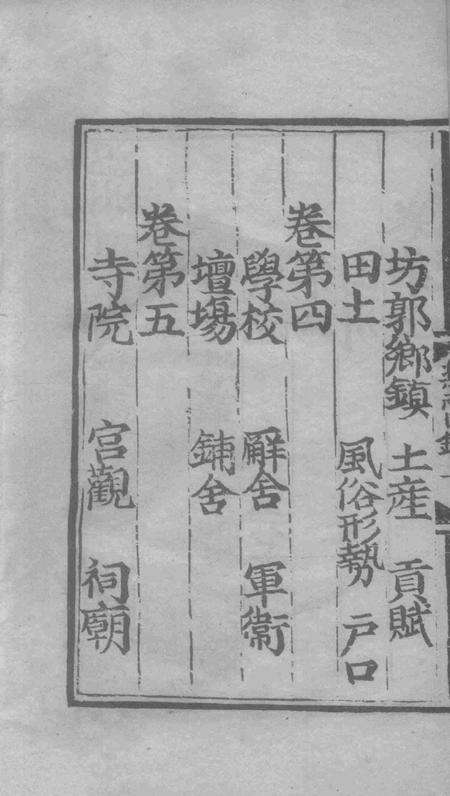 坊郭鄉鎮 土産 貢賦
田土 風俗形勢 戸口
卷第四
學校 廨舍 軍衛
壇場 鋪舍
卷第五
寺院 宮觀 祠廟